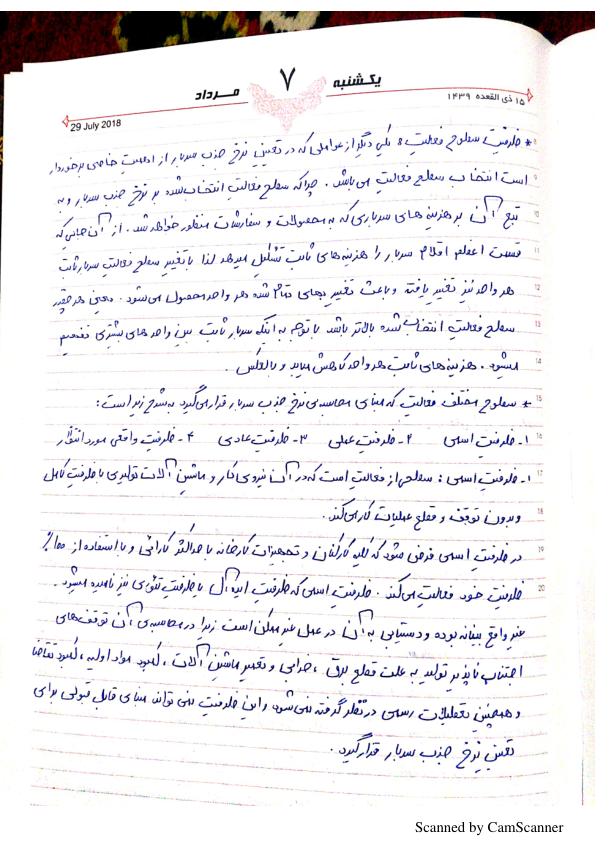 یکشنبه ۷ مرداد
۱۵ ذی القعده ۱۴۳۹
29 July 2018
* ظرفیت سطوح فعالیت : یکی دیگر از عواملی که در تعیین نرخ جذب سربار از اهمیت خاصی برخوردار
است انتخاب سطح فعالیت می باشد . چرا که سطح فعالیت انتخاب شده بر نرخ جذب سربار و به
تبع آن بر هزینه های سرباری که به محصولات و سفارشات منظور خواهد شد . از آن جایی که
قسمت اعظم اقلام سربار را هزینه های ثابت تشکیل میدهد لذا با تغییر سطح فعالیت سربار ثابت
هر واحد نیز تغییر یافته و باعث تغییر بهای تمام شده هر واحد محصول می شود . یعنی هر چقدر
سطح فعالیت انتخاب شده بالاتر باشد با توجه به اینکه سربار ثابت بین واحد های بیشتری تقسیم
میشود . هزینه های ثابت هر واحد کاهش میابد و بالعکس .
* سطوح مختلف فعالیت که مبنای محاسبه ی نرخ جذب سربار قرار می گیرد به شرح زیر است :
۱- ظرفیت اسمی ۲- ظرفیت عملی ۳- ظرفیت عادی ۴- ظرفیت واقعی مورد انتظار
۱- ظرفیت اسمی : سطحی از فعالیت است که در آن نیروی کار و ماشین آلات تولیدی با ظرفیت کامل
و بدون توقف و قطع عملیات کار می کند .
در ظرفیت اسمی فرض میشود که کلیه کارکنان و تجهیزات کارخانه با حداکثر کارائی و با استفاده از ۱۰۰٪
ظرفیت خود فعالیت می کند . ظرفیت اسمی که ظرفیت ایده آل یا ظرفیت تئوری نیز نامیده میشود .
غیر واقع بینانه بوده و دستیابی به آن در عمل غیر ممکن است زیرا در محاسبه ی آن توقف های
اجتناب ناپذیر تولید به علت قطع برق ، خرابی و تعمیر ماشین آلات ، کمبود مواد اولیه ، کمبود تقاضا
و همچنین تعطیلات رسمی در نظر گرفته نمی شود و این ظرفیت نمی تواند مبنای قابل قبولی برای
تعیین نرخ جذب سربار قرار گیرد .
Scanned by CamScanner